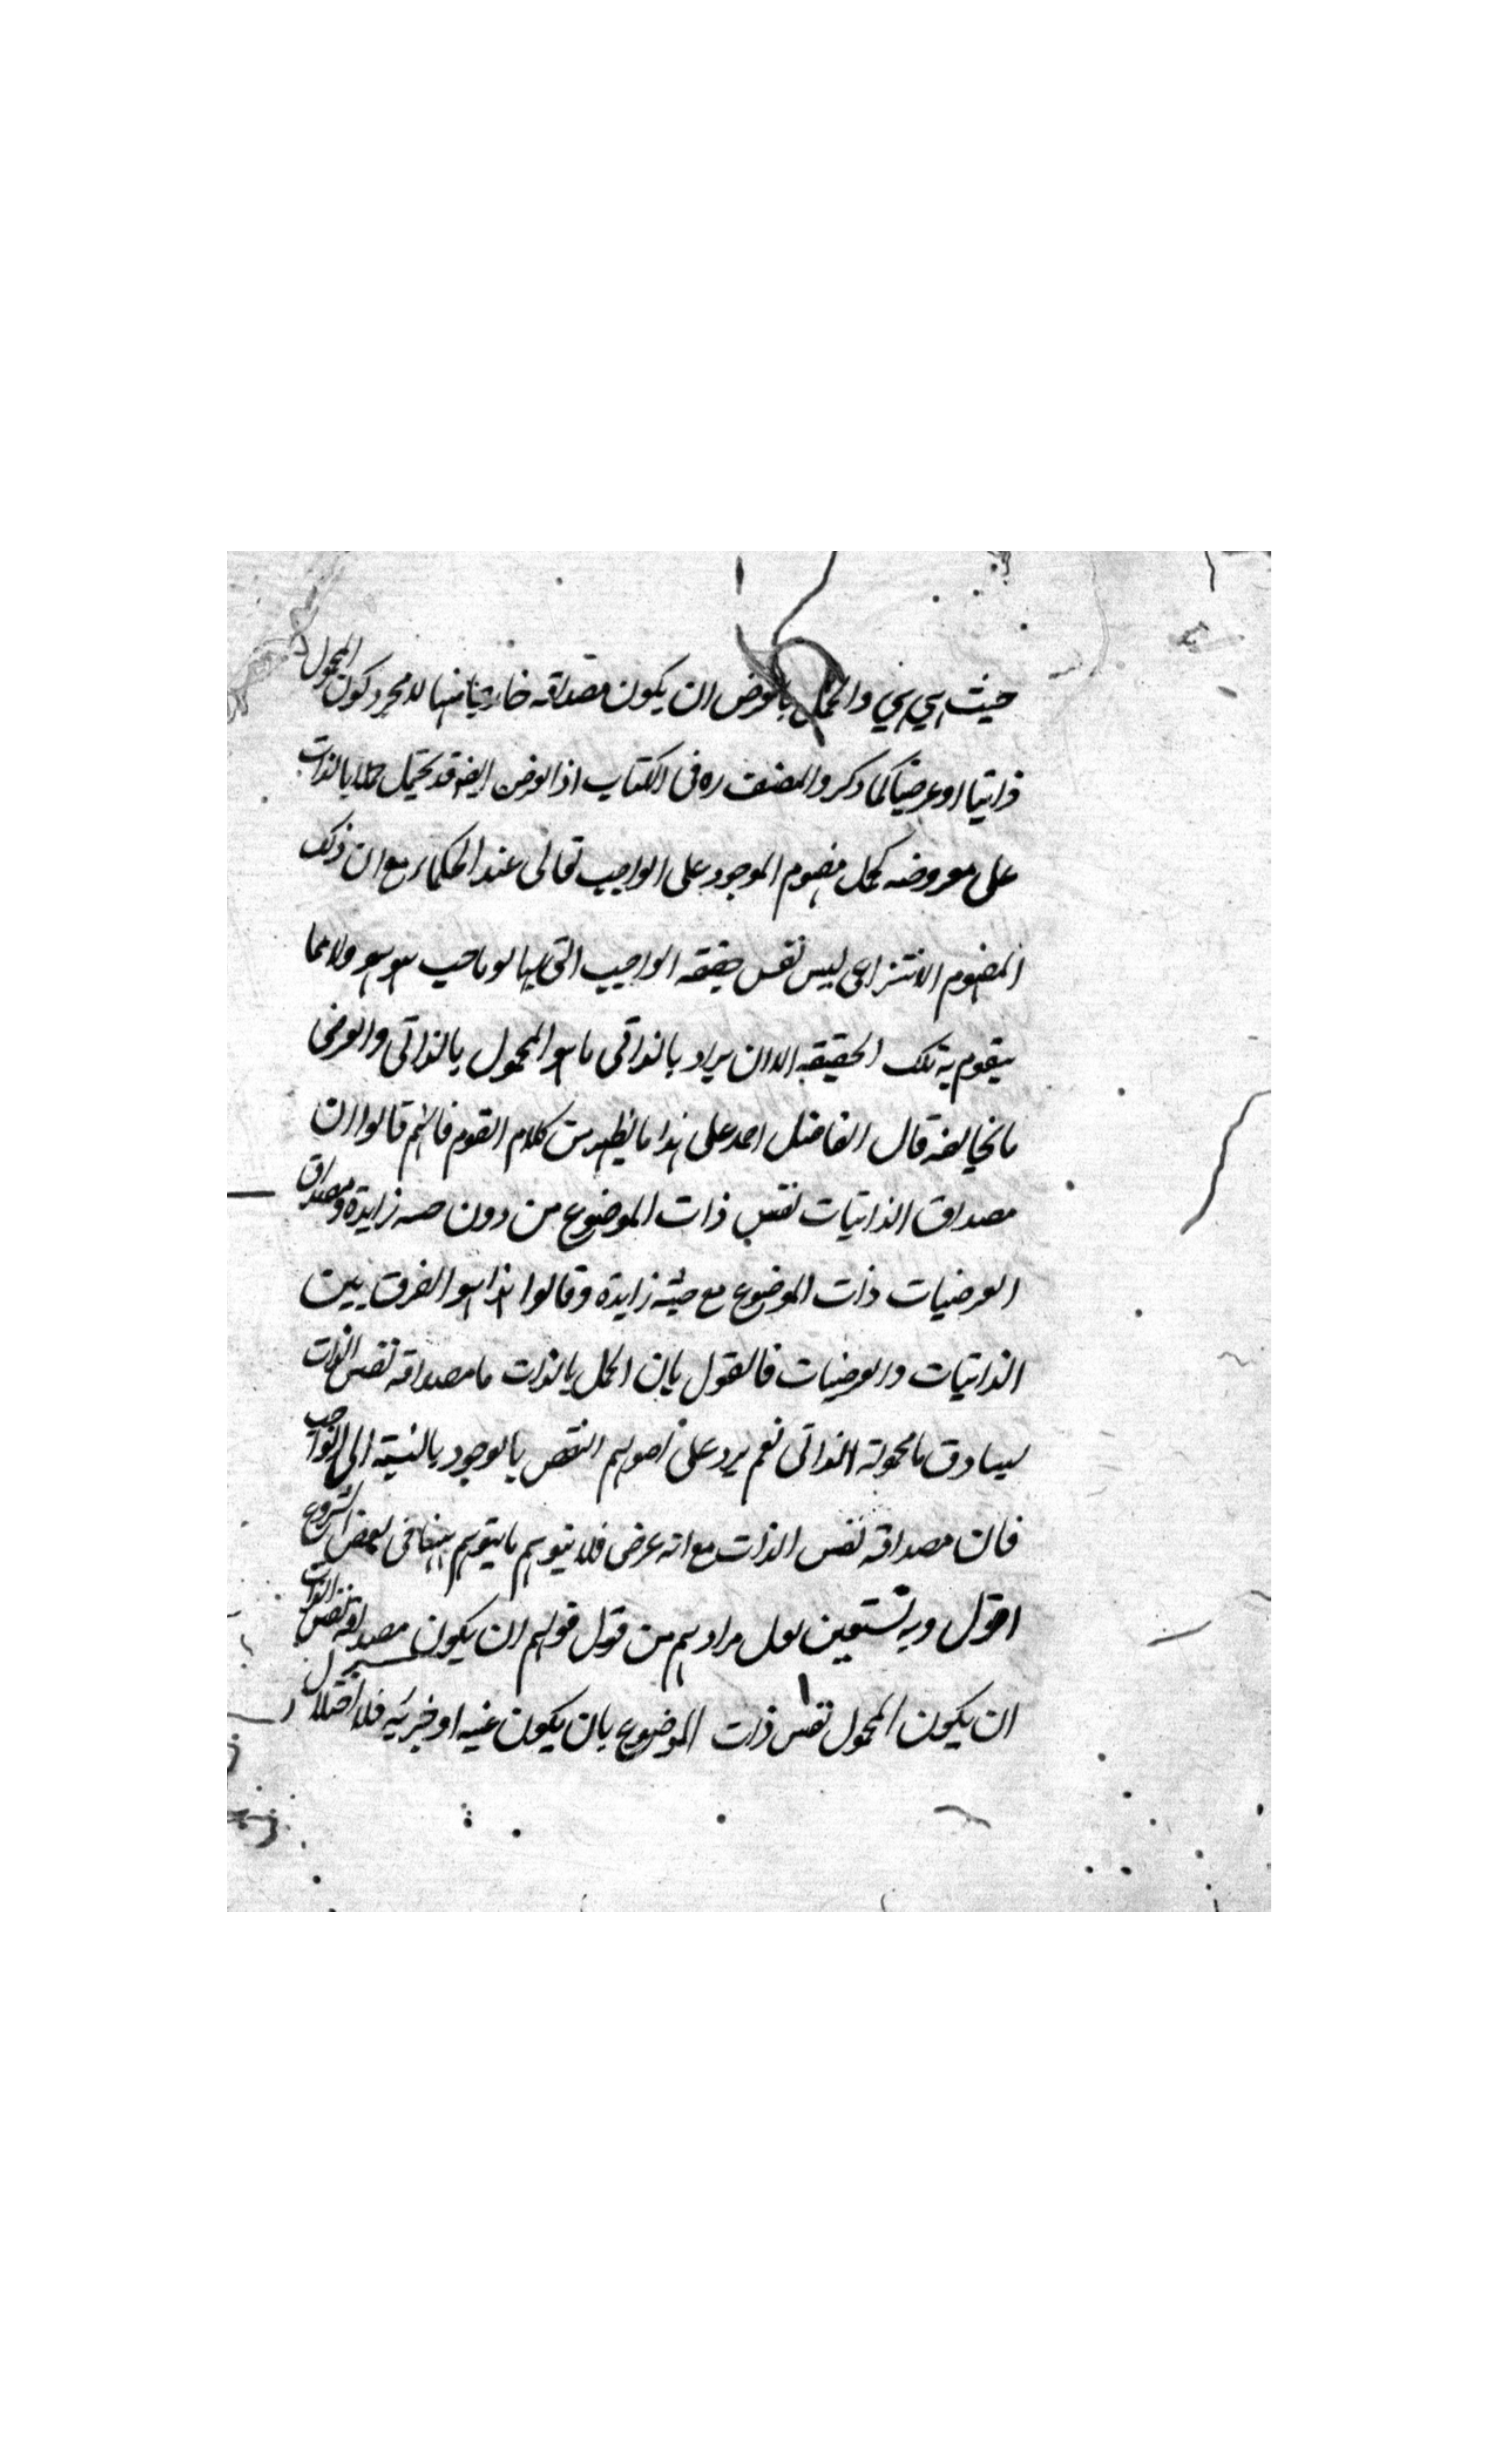 حيث هي هي والحمل بالعرض ان يكون مصداقه خارجيا منها لا مجرد كون المحمول
ذاتيا او عرضيا كما ذكره المصنف ره فى الكتاب اذ العرض ايضو قد يحتمل حملا بالذات
على معروضه كحمل مفهوم الموجود على الواجب تعالى عند الحكماء مع ان ذلك
المفهوم الانتزاعى ليس نفس حقيقه الواجب التى بها هو ما حيث هو هو ولا مما
يتقوم به تلك الحقيقه الا ان يراد بالذاتى ما هو المحمول بالذاتى والعرضى
ما يخالفه قال الفاضل احمد على هذا ما يظهر من كلام القوم فانهم قالوا ان
مصداق الذاتيات نفس ذات الموضوع من دون حيثية زايدة ومصداق
العرضيات ذات الموضوع مع حيثية زايدة وقالوا هذا هو الفرق بين
الذاتيات والعرضيات فالقول بان الحمل بالذات ما مصداقه نفس الذات
يساوق ما محموله الذاتى نعم يرد على اصولهم النقض بالوجود بالنسبة الى الواجب
فان مصداقه نفس الذات مع انه عرضى فلا يتوهم ما يتوهم ههنا فى بعض الشروح
اقول وبه نستعين لعل مرادهم من قول قولهم ان يكون مصداقه نفس الذات
ان يكون المحمول نفس ذات الموضوع بان يكون عينه او جزئه فلا اختلال